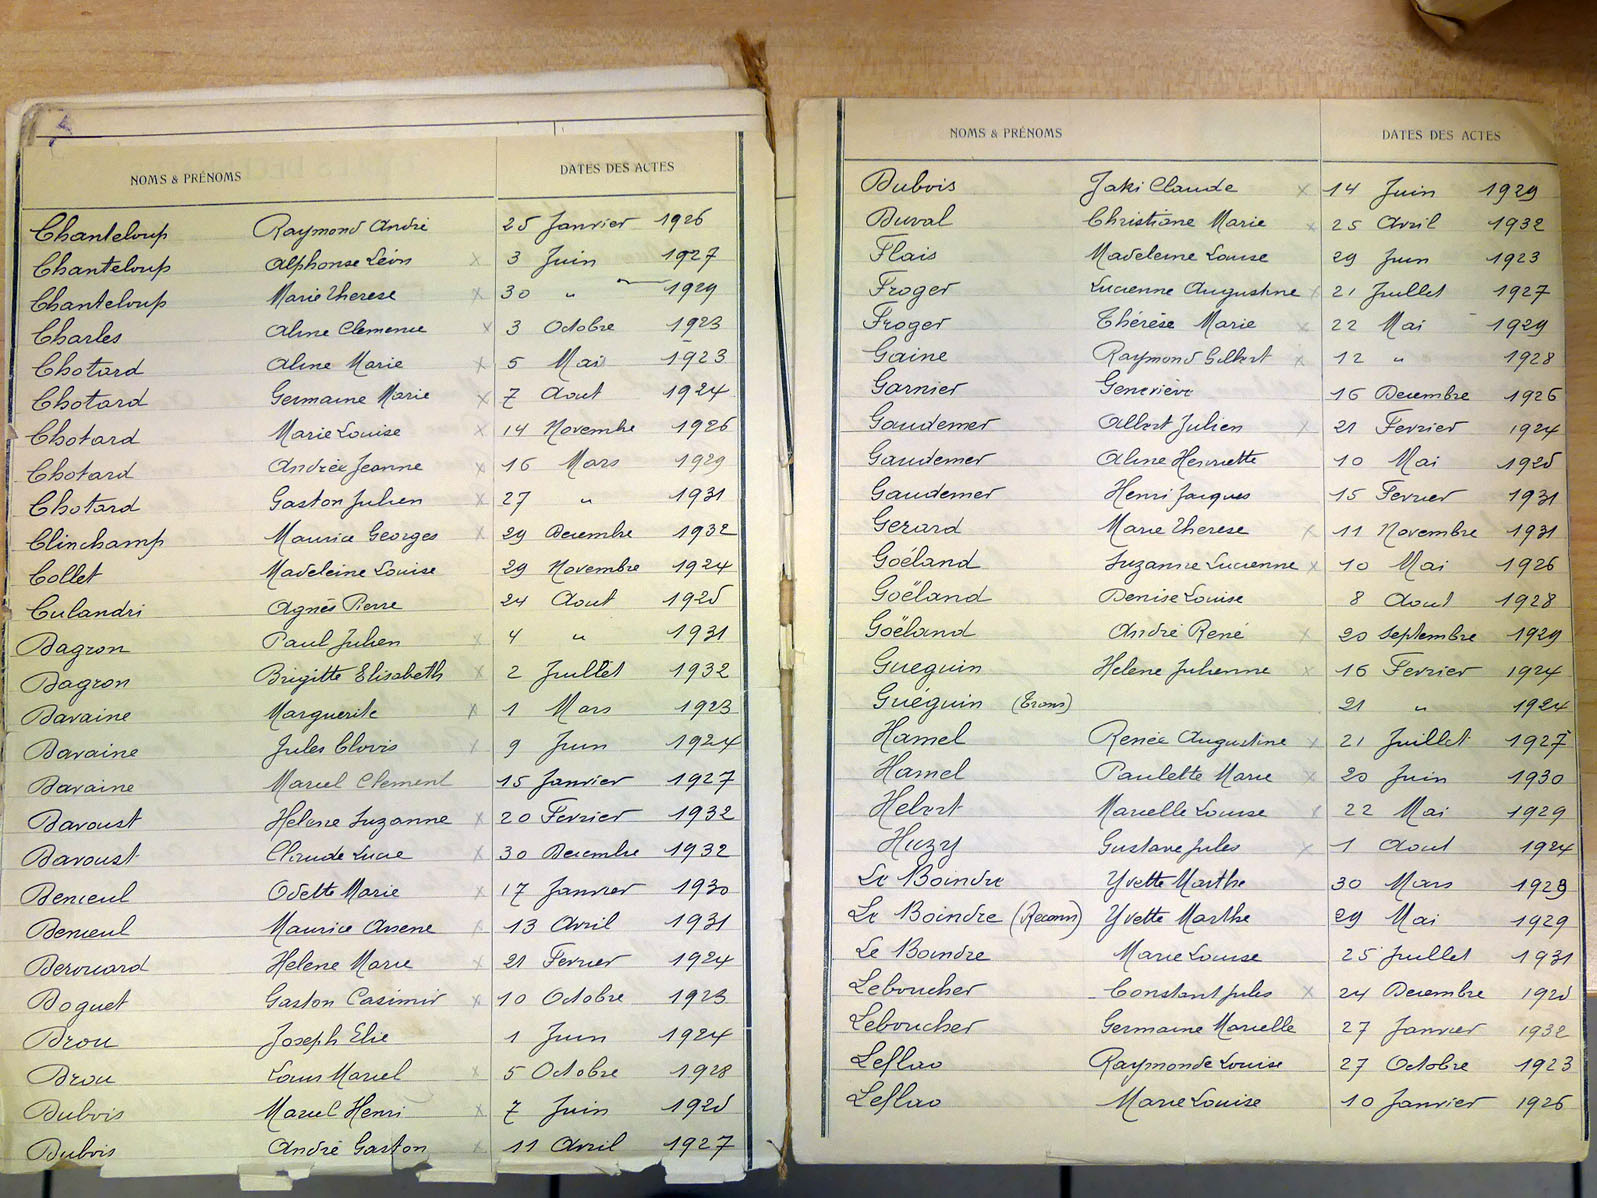 NOMS & PRÉNOMS DATES DES ACTES
Chanteloup Raymond André 25 Janvier 1926
Chanteloup Alphonse Léon x 3 Juin 1927
Chanteloup Marie Therese x 30 " 1929
Charles Aline Clemence x 3 Octobre 1923
Chotard Aline Marie x 5 Mai 1923
Chotard Germaine Marie x 7 Aout 1924
Chotard Marie Louise x 14 Novembre 1926
Chotard Andrée Jeanne x 16 Mars 1929
Chotard Gaston Julien x 27 " 1931
Clinchamp Maurice Georges x 29 Decembre 1932
Collet Madeleine Louise 29 Novembre 1924
Culandri Agnés Pierre 24 Aout 1925
Dagron Paul Julien x 4 " 1931
Dagron Brigitte Elisabeth x 2 Juillet 1932
Davaine Marguerite x 1 Mars 1923
Davaine Jules Clovis x 9 Juin 1924
Davaine Marcel Clement 15 Janvier 1927
Davoust Helene Suzanne x 20 Fevrier 1932
Davoust Claude Lucie x 30 Decembre 1932
Denieul Odette Marie x 17 Janvier 1930
Denieul Maurice Arsene x 13 Avril 1931
Derouard Helene Marie x 21 Fevrier 1924
Doguet Gaston Casimir x 10 Octobre 1923
Drou Joseph Elie 1 Juin 1924
Drou Louis Marcel x 5 Octobre 1928
Dubois Marcel Henri x 7 Juin 1925
Dubois André Gaston x 11 Avril 1927
NOMS & PRÉNOMS DATES DES ACTES
Dubois Jaki Claude x 14 Juin 1929
Duval Christiane Marie x 25 Avril 1932
Flais Madeleine Louise 29 Juin 1923
Froger Lucienne Augustine x 21 Juillet 1927
Froger Thérèse Marie x 22 Mai 1929
Gaine Raymond Gilbert x 12 " 1928
Garnier Geneviève 16 Decembre 1926
Gaudemer Albert Julien x 21 Fevrier 1924
Gaudemer Aline Henriette 10 Mai 1925
Gaudemer Henri Jacques 15 Fevrier 1931
Gerard Marie Therese x 11 Novembre 1931
Goëland Suzanne Lucienne x 10 Mai 1926
Goëland Denise Louise 8 Aout 1928
Goëland André René x 20 Septembre 1929
Gueguin Helene Julienne x 16 Fevrier 1924
Guéguin (Trans) 21 " 1924
Hamel Renée Augustine x 21 Juillet 1927
Hamel Paulette Marie x 20 Juin 1930
Hebert Marcelle Louise x 22 Mai 1929
Huzy Gustave Jules x 1 Aout 1924
Le Boindre Yvette Marthe 30 Mars 1929
Le Boindre (Reconn) Yvette Marthe 29 Mai 1929
Le Boindre Marie Louise 25 Juillet 1931
Leboucher Constant Jules x 24 Decembre 1925
Leboucher Germaine Marcelle 27 Janvier 1932
Leflao Raymonde Louise 27 Octobre 1923
Leflao Marie Louise 10 Janvier 1926